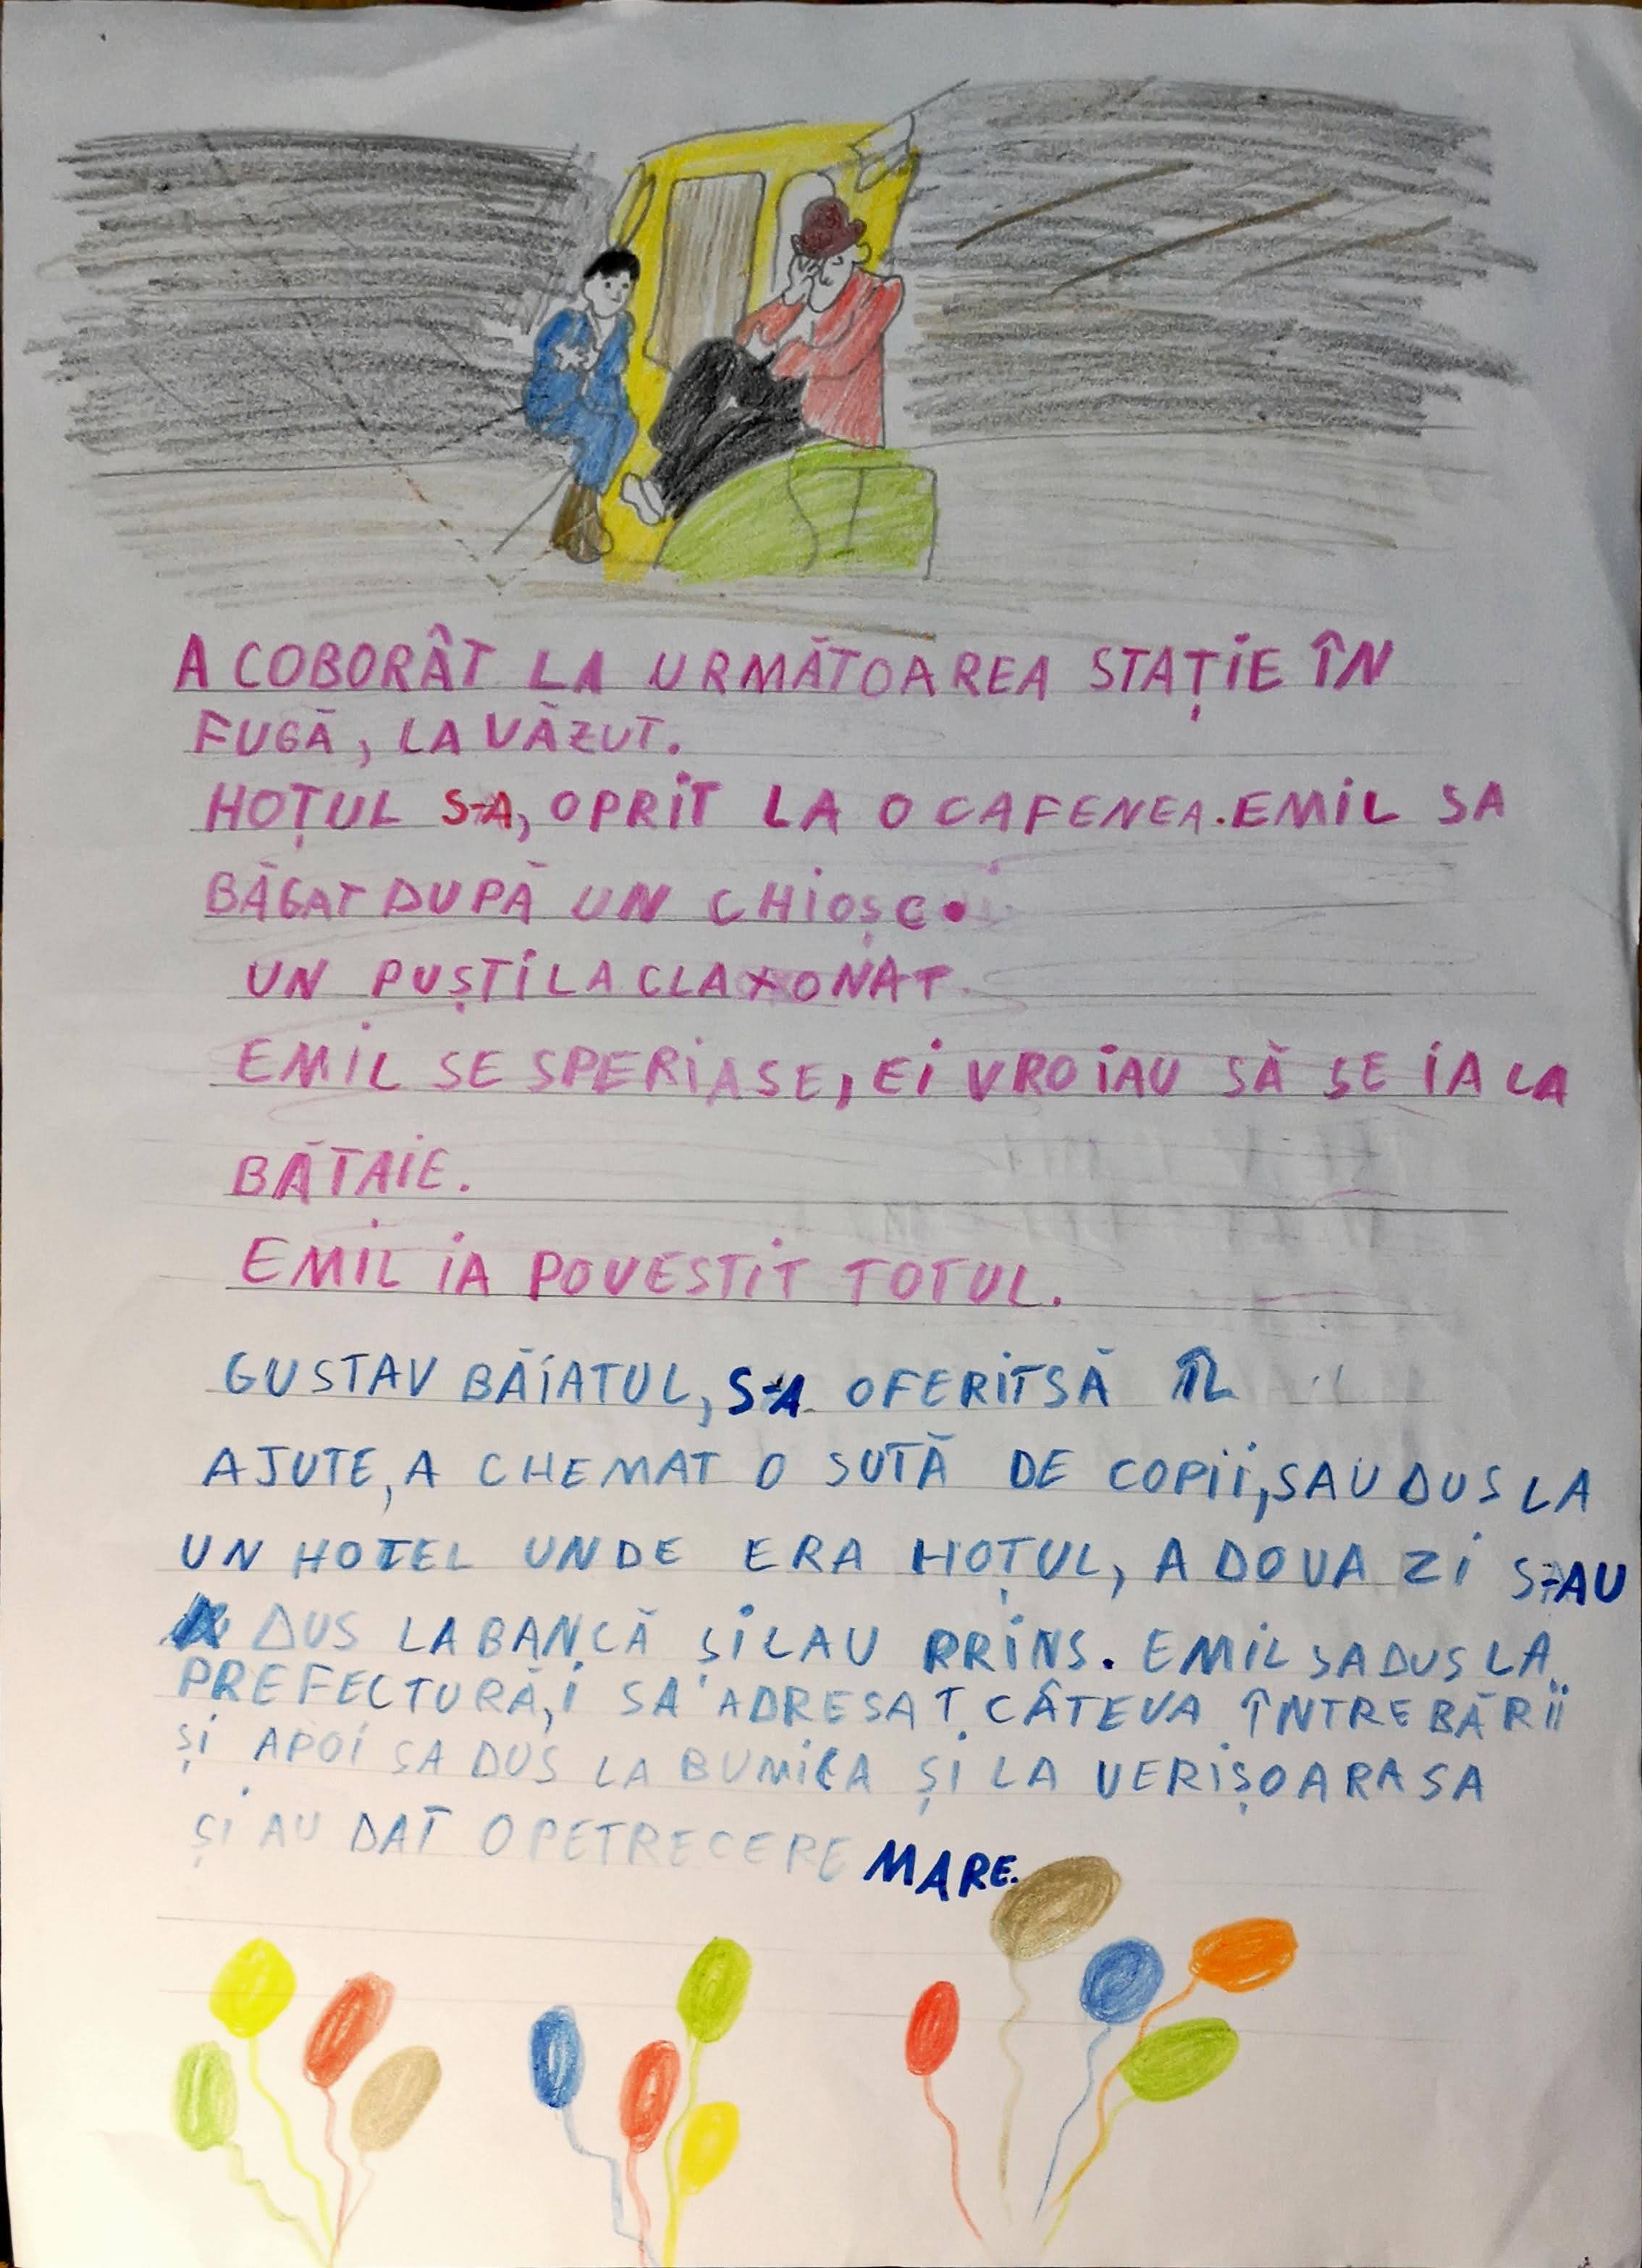 A COBORÂT LA URMĂTOAREA STAȚIE ÎN
FUGĂ, LA VĂZUT.
HOȚUL S-A, OPRIT LA O CAFENEA. EMIL SA
BĂGAT DUPĂ UN CHIOȘC.
UN PUȘTI LA CLAXONAT.
EMIL SE SPERIASE, EI VROIAU SĂ SE IA LA
BĂTAIE.
EMIL IA POVESTIT TOTUL.
GUSTAV BĂIATUL, S-A OFERIT SĂ ÎL
AJUTE, A CHEMAT O SUTĂ DE COPII, SAU DUS LA
UN HOTEL UNDE ERA HOȚUL, A DOUA ZI S-AU
DUS LA BANCĂ ȘI LAU PRINS. EMIL SA DUS LA
PREFECTURĂ, I SA ADRESAT CÂTEVA ÎNTREBĂRII
ȘI APOI SA DUS LA BUNICA ȘI LA VERIȘOARA SA
ȘI AU DAT O PETRECERE MARE.